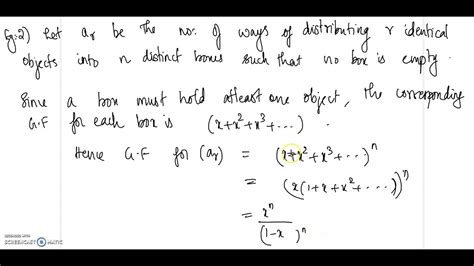 Eg:2) Let aᵣ be the no: of ways of distributing r identical
objects into n distinct boxes such that no box is empty.
Since a box must hold atleast one object, the corresponding
G.F for each box is (x+x²+x³+...).
Hence G.F for (aᵣ) = (x+x²+x³+...)ⁿ
= (x(1+x+x²+...))ⁿ
= xⁿ/(1-x)ⁿ
RECORDED WITH
SCREENCAST-O-MATIC